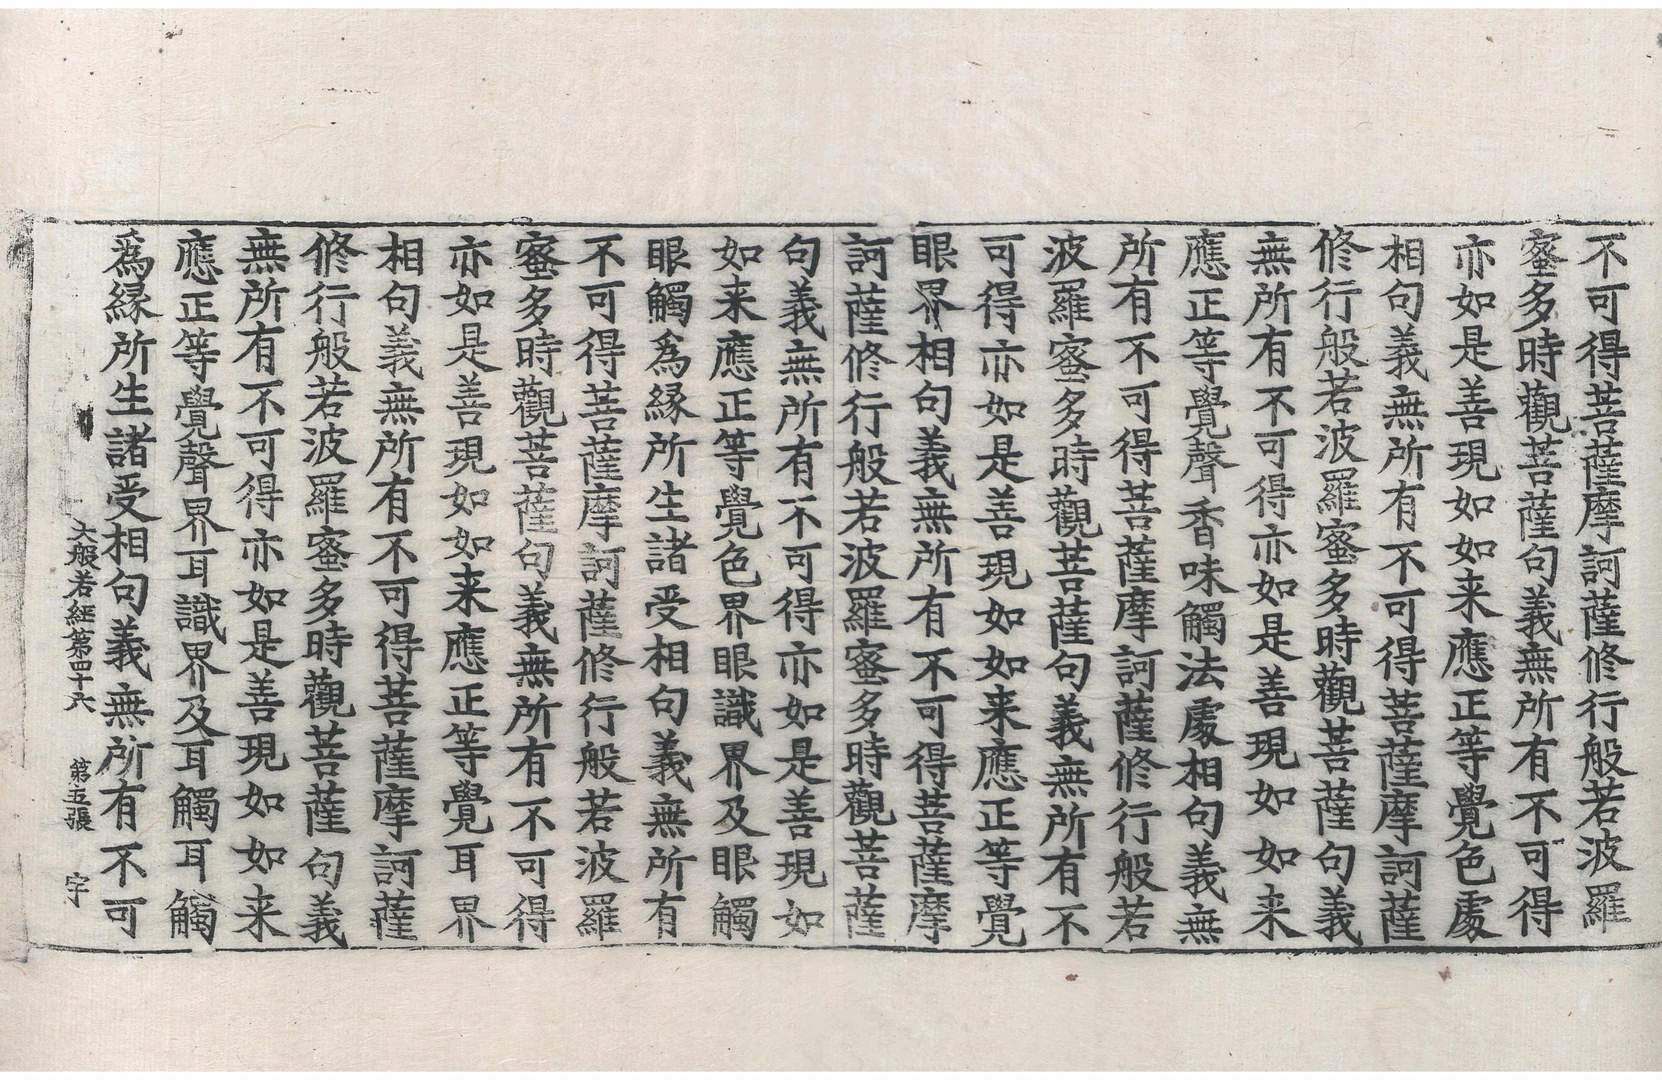 不可得菩薩摩訶薩修行般若波羅
蜜多時觀菩薩句義無所有不可得
亦如是善現如如来應正等覺色處
相句義無所有不可得菩薩摩訶薩
修行般若波羅蜜多時觀菩薩句義
無所有不可得亦如是善現如如来
應正等覺聲香味觸法處相句義無
所有不可得菩薩摩訶薩修行般若
波羅蜜多時觀菩薩句義無所有不
可得亦如是善現如如来應正等覺
眼界相句義無所有不可得菩薩摩
訶薩修行般若波羅蜜多時觀菩薩
句義無所有不可得亦如是善現如
如来應正等覺色界眼識界及眼觸
眼觸爲緣所生諸受相句義無所有
不可得菩薩摩訶薩修行般若波羅
蜜多時觀菩薩句義無所有不可得
亦如是善現如如来應正等覺耳界
相句義無所有不可得菩薩摩訶薩
修行般若波羅蜜多時觀菩薩句義
無所有不可得亦如是善現如如来
應正等覺聲界耳識界及耳觸耳觸
爲緣所生諸受相句義無所有不可
大般若經第四十六 第五張 宇